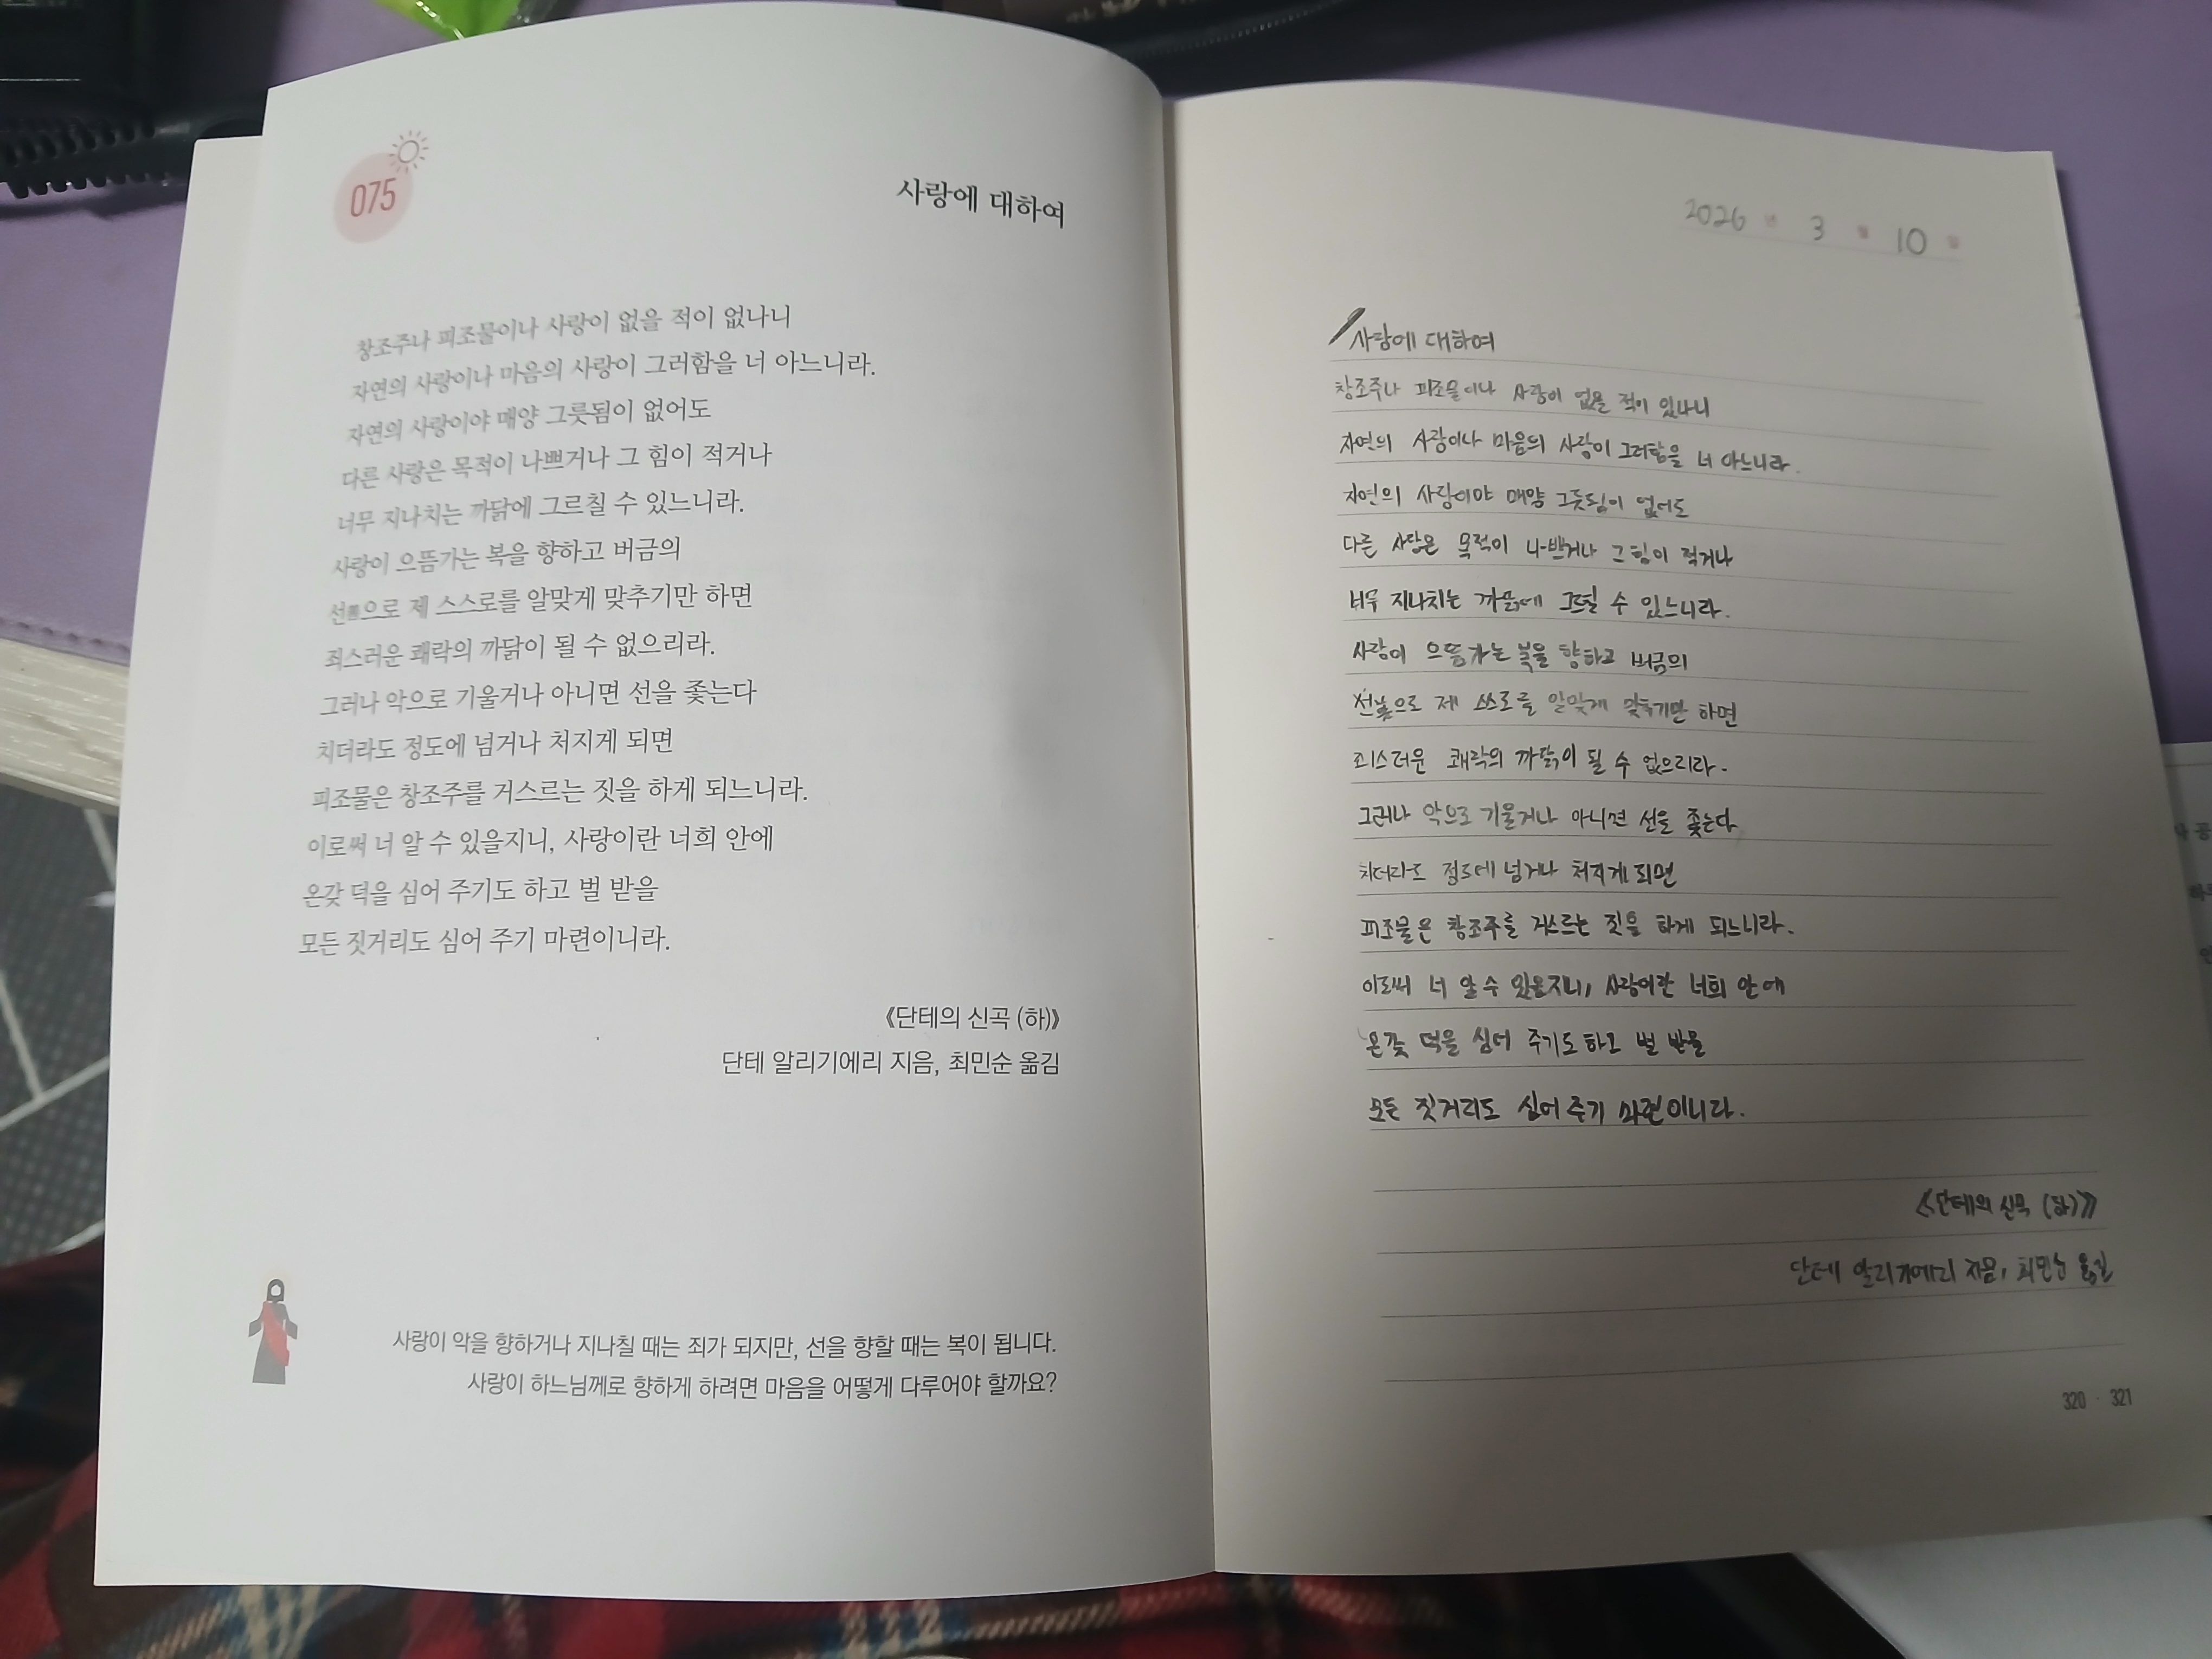 075
사랑에 대하여
창조주나 피조물이나 사랑이 없을 적이 없나니
자연의 사랑이나 마음의 사랑이 그러함을 너 아느니라.
자연의 사랑이야 매양 그릇됨이 없어도
다른 사랑은 목적이 나쁘거나 그 힘이 적거나
너무 지나치는 까닭에 그르칠 수 있느니라.
사랑이 으뜸가는 복을 향하고 버금의
선善으로 제 스스로를 알맞게 맞추기만 하면
죄스러운 쾌락의 까닭이 될 수 없으리라.
그러나 악으로 기울거나 아니면 선을 좇는다
치더라도 정도에 넘거나 처지게 되면
피조물은 창조주를 거스르는 짓을 하게 되느니라.
이로써 너 알 수 있을지니, 사랑이란 너희 안에
온갖 덕을 심어 주기도 하고 벌 받을
모든 짓거리도 심어 주기 마련이니라.
《단테의 신곡 (하)》
단테 알리기에리 지음, 최민순 옮김
사랑이 악을 향하거나 지나칠 때는 죄가 되지만, 선을 향할 때는 복이 됩니다.
사랑이 하느님께로 향하게 하려면 마음을 어떻게 다루어야 할까요?
2026 년 3 월 10 일
사랑에 대하여
창조주나 피조물이나 사랑이 없을 적이 있나니
자연의 사랑이나 마음의 사랑이 그러함을 너 아느니라.
자연의 사랑이야 매양 그릇됨이 없어도
다른 사랑은 목적이 나쁘거나 그 힘이 적거나
너무 지나치는 까닭에 그르칠 수 있느니라.
사랑이 으뜸가는 복을 향하고 버금의
선善으로 제 쓰로를 알맞게 맞추기만 하면
죄스러운 쾌락의 까닭이 될 수 없으리라.
그러나 악으로 기울거나 아니면 선을 좇는다
치더라도 정도에 넘거나 처지게 되면
피조물은 창조주를 거스르는 짓을 하게 되느니라.
이로써 너 알 수 있을지니, 사랑이란 너희 안에
온갖 덕을 심어 주기도 하고 벌 받을
모든 짓거리도 심어 주기 마련이니라.
《단테의 신곡 (하)》
단테 알리기에리 지음, 최민순 옮김
320 · 321